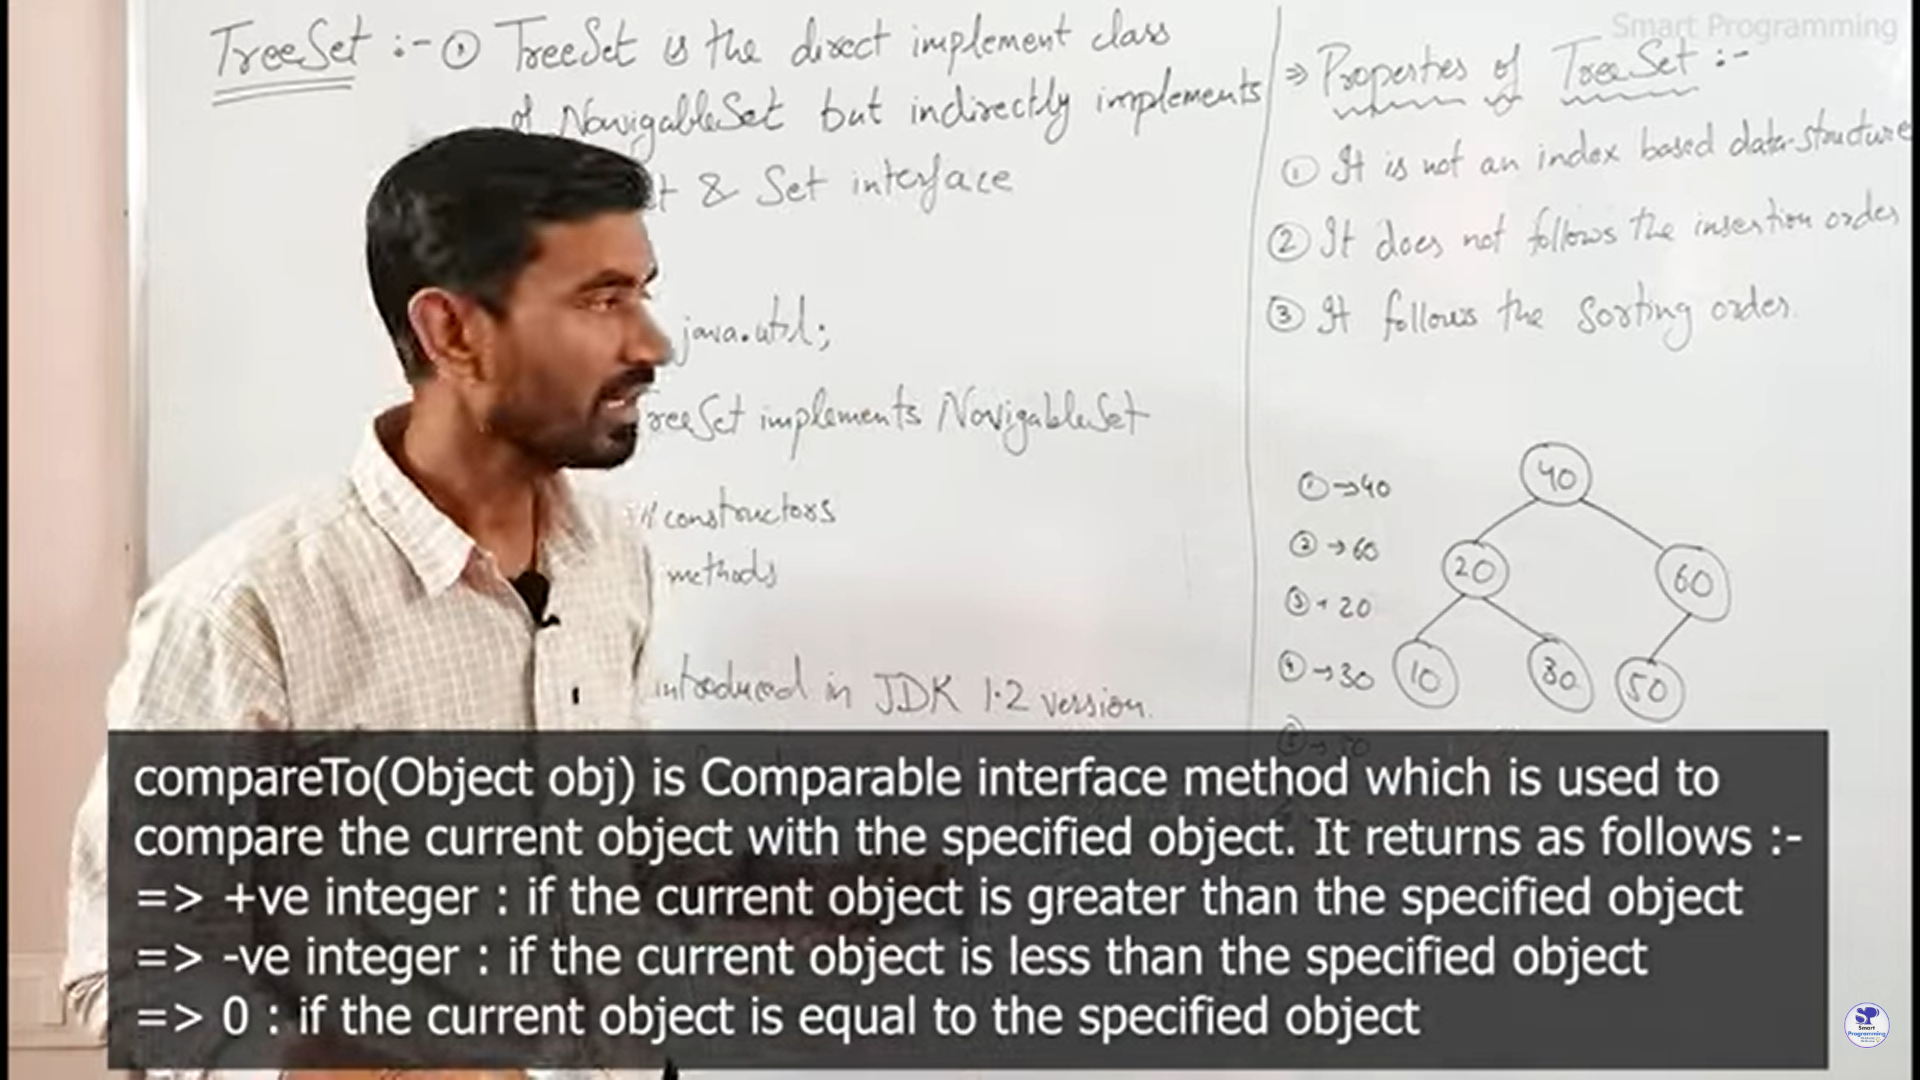 Smart Programming
TreeSet :- ① TreeSet is the direct implement class
of NavigableSet but indirectly implements
& Set interface
java.util;
TreeSet implements NavigableSet
// constructors
methods
introduced in JDK 1.2 version.
⇒ Properties of TreeSet :-
① It is not an index based data-structure
② It does not follows the insertion order
③ It follows the Sorting order.
① → 40
② → 60
③ → 20
④ → 30
⑤ → 50
40
20 60
10 30 50
compareTo(Object obj) is Comparable interface method which is used to
compare the current object with the specified object. It returns as follows :-
=> +ve integer : if the current object is greater than the specified object
=> -ve integer : if the current object is less than the specified object
=> 0 : if the current object is equal to the specified object
SP
Smart
Programming